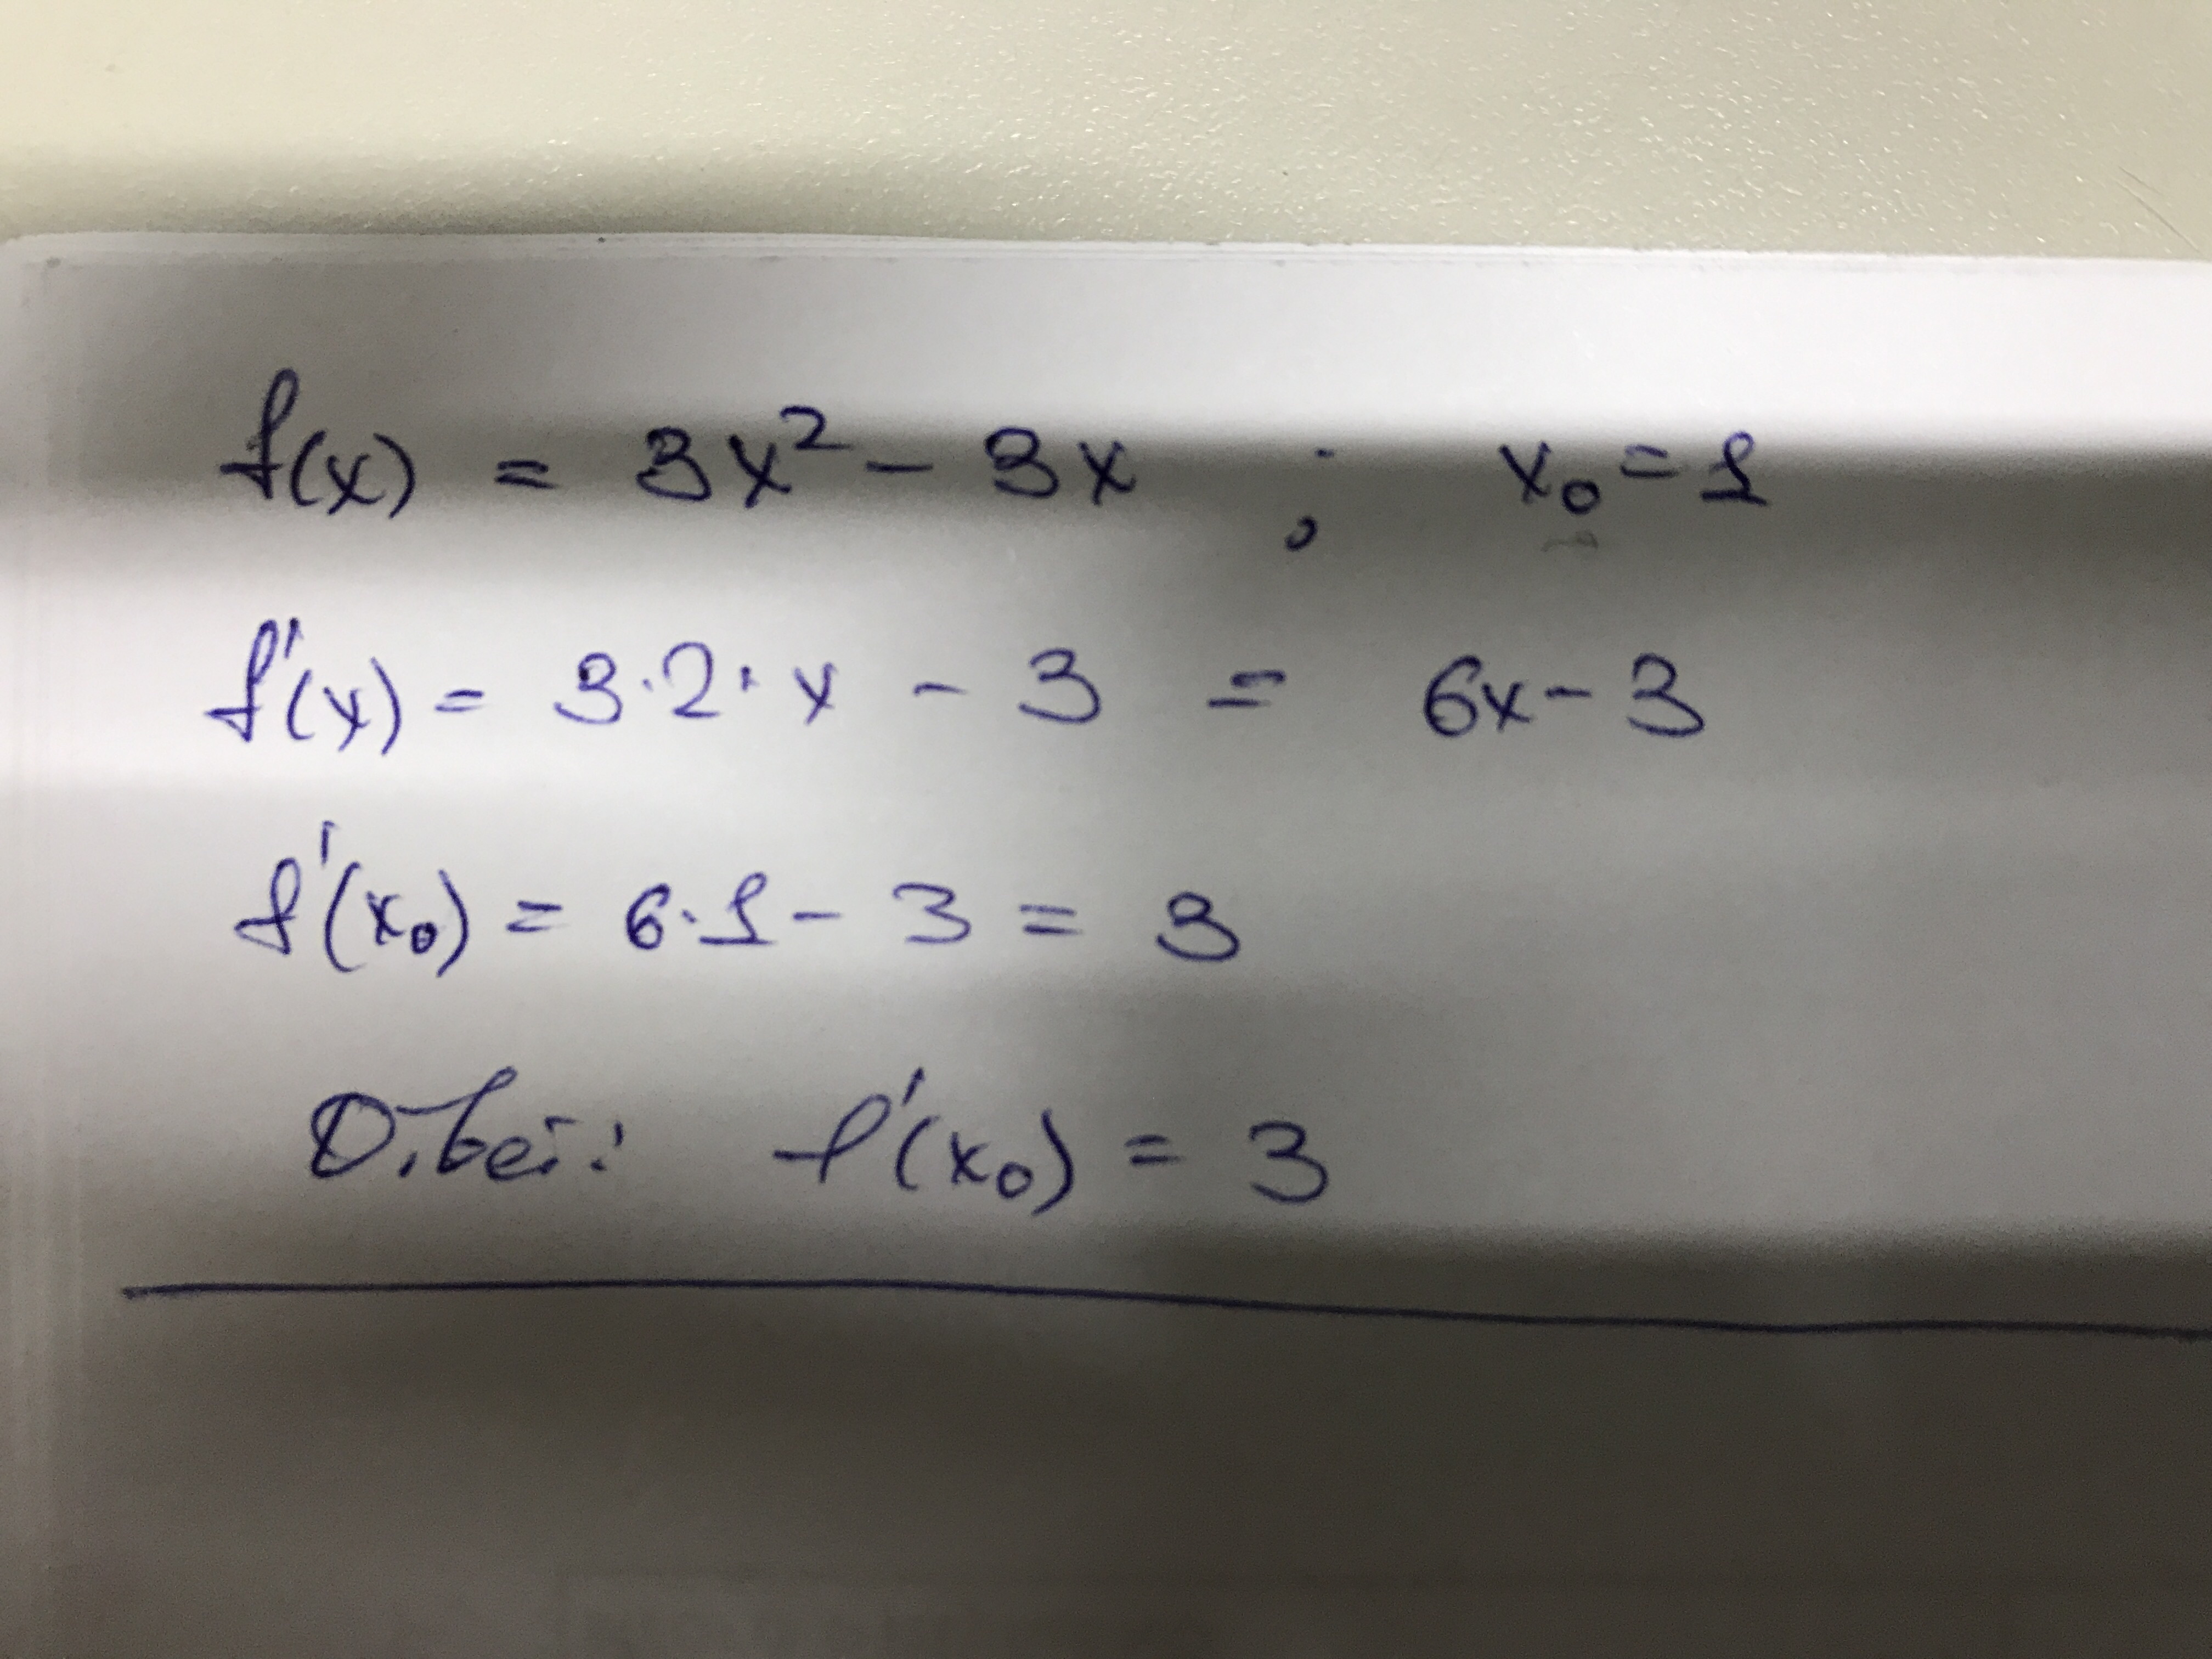 f(x) = 3x² - 3x ; x₀ = 1
f'(x) = 3·2·x - 3 = 6x - 3
f'(x₀) = 6·1 - 3 = 3
Ответ: f'(x₀) = 3